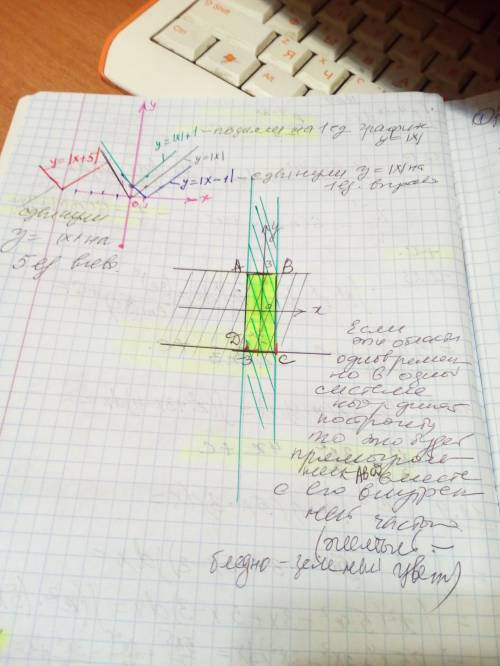 y
y=|x|+1 - подняли на 1 ед график y=|x|
y=|x+5|
y=|x|
y=|x-1| - сдвинули y=|x| на
1 ед. вправо
0 1
x
сдвинули
y=|x| на
5 ед влево.
y
A 3 B
x
D
-3 C
Если
эти области
одновремен
но в одной
системе
координат
построить
то это будет
прямоуголь-
ник ABCD вместе
с его внутрен
ней частью
(желтый -
бледно-зеленый цвет)
Ctrl
Alt
Я
Ч